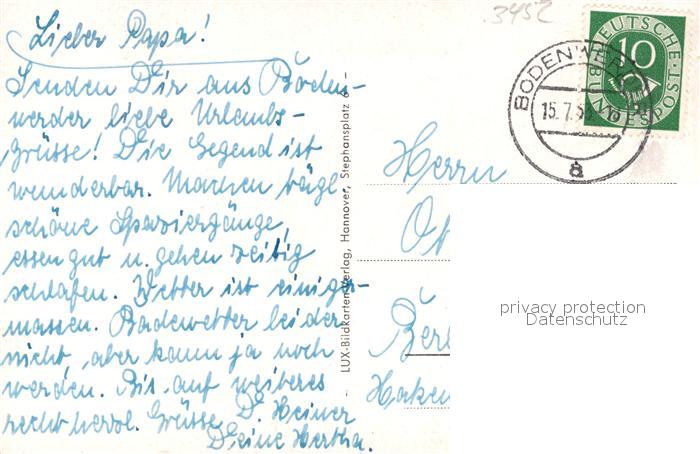 Lieber Papa!
Senden Dir aus Boden-
werder liebe Urlaubs-
Grüsse! Die Gegend ist
wunderbar. Machen tägl.
schöne Spaziergänge,
essen gut u. gehen zeitig
schlafen. Wetter ist einiger-
massen. Badewetter leider
nicht, aber kann ja noch
werden. Bis auf weiteres
recht herzl. Grüsse D. Heiner
Deine Hertha.
LUX-Bildkarten-Verlag, Hannover, Stephansplatz 6
.3452
DEUTSCHE
BUNDESPOST
10
BODENWERDER
15.7.53
a
Herrn
privacy protection
Datenschutz